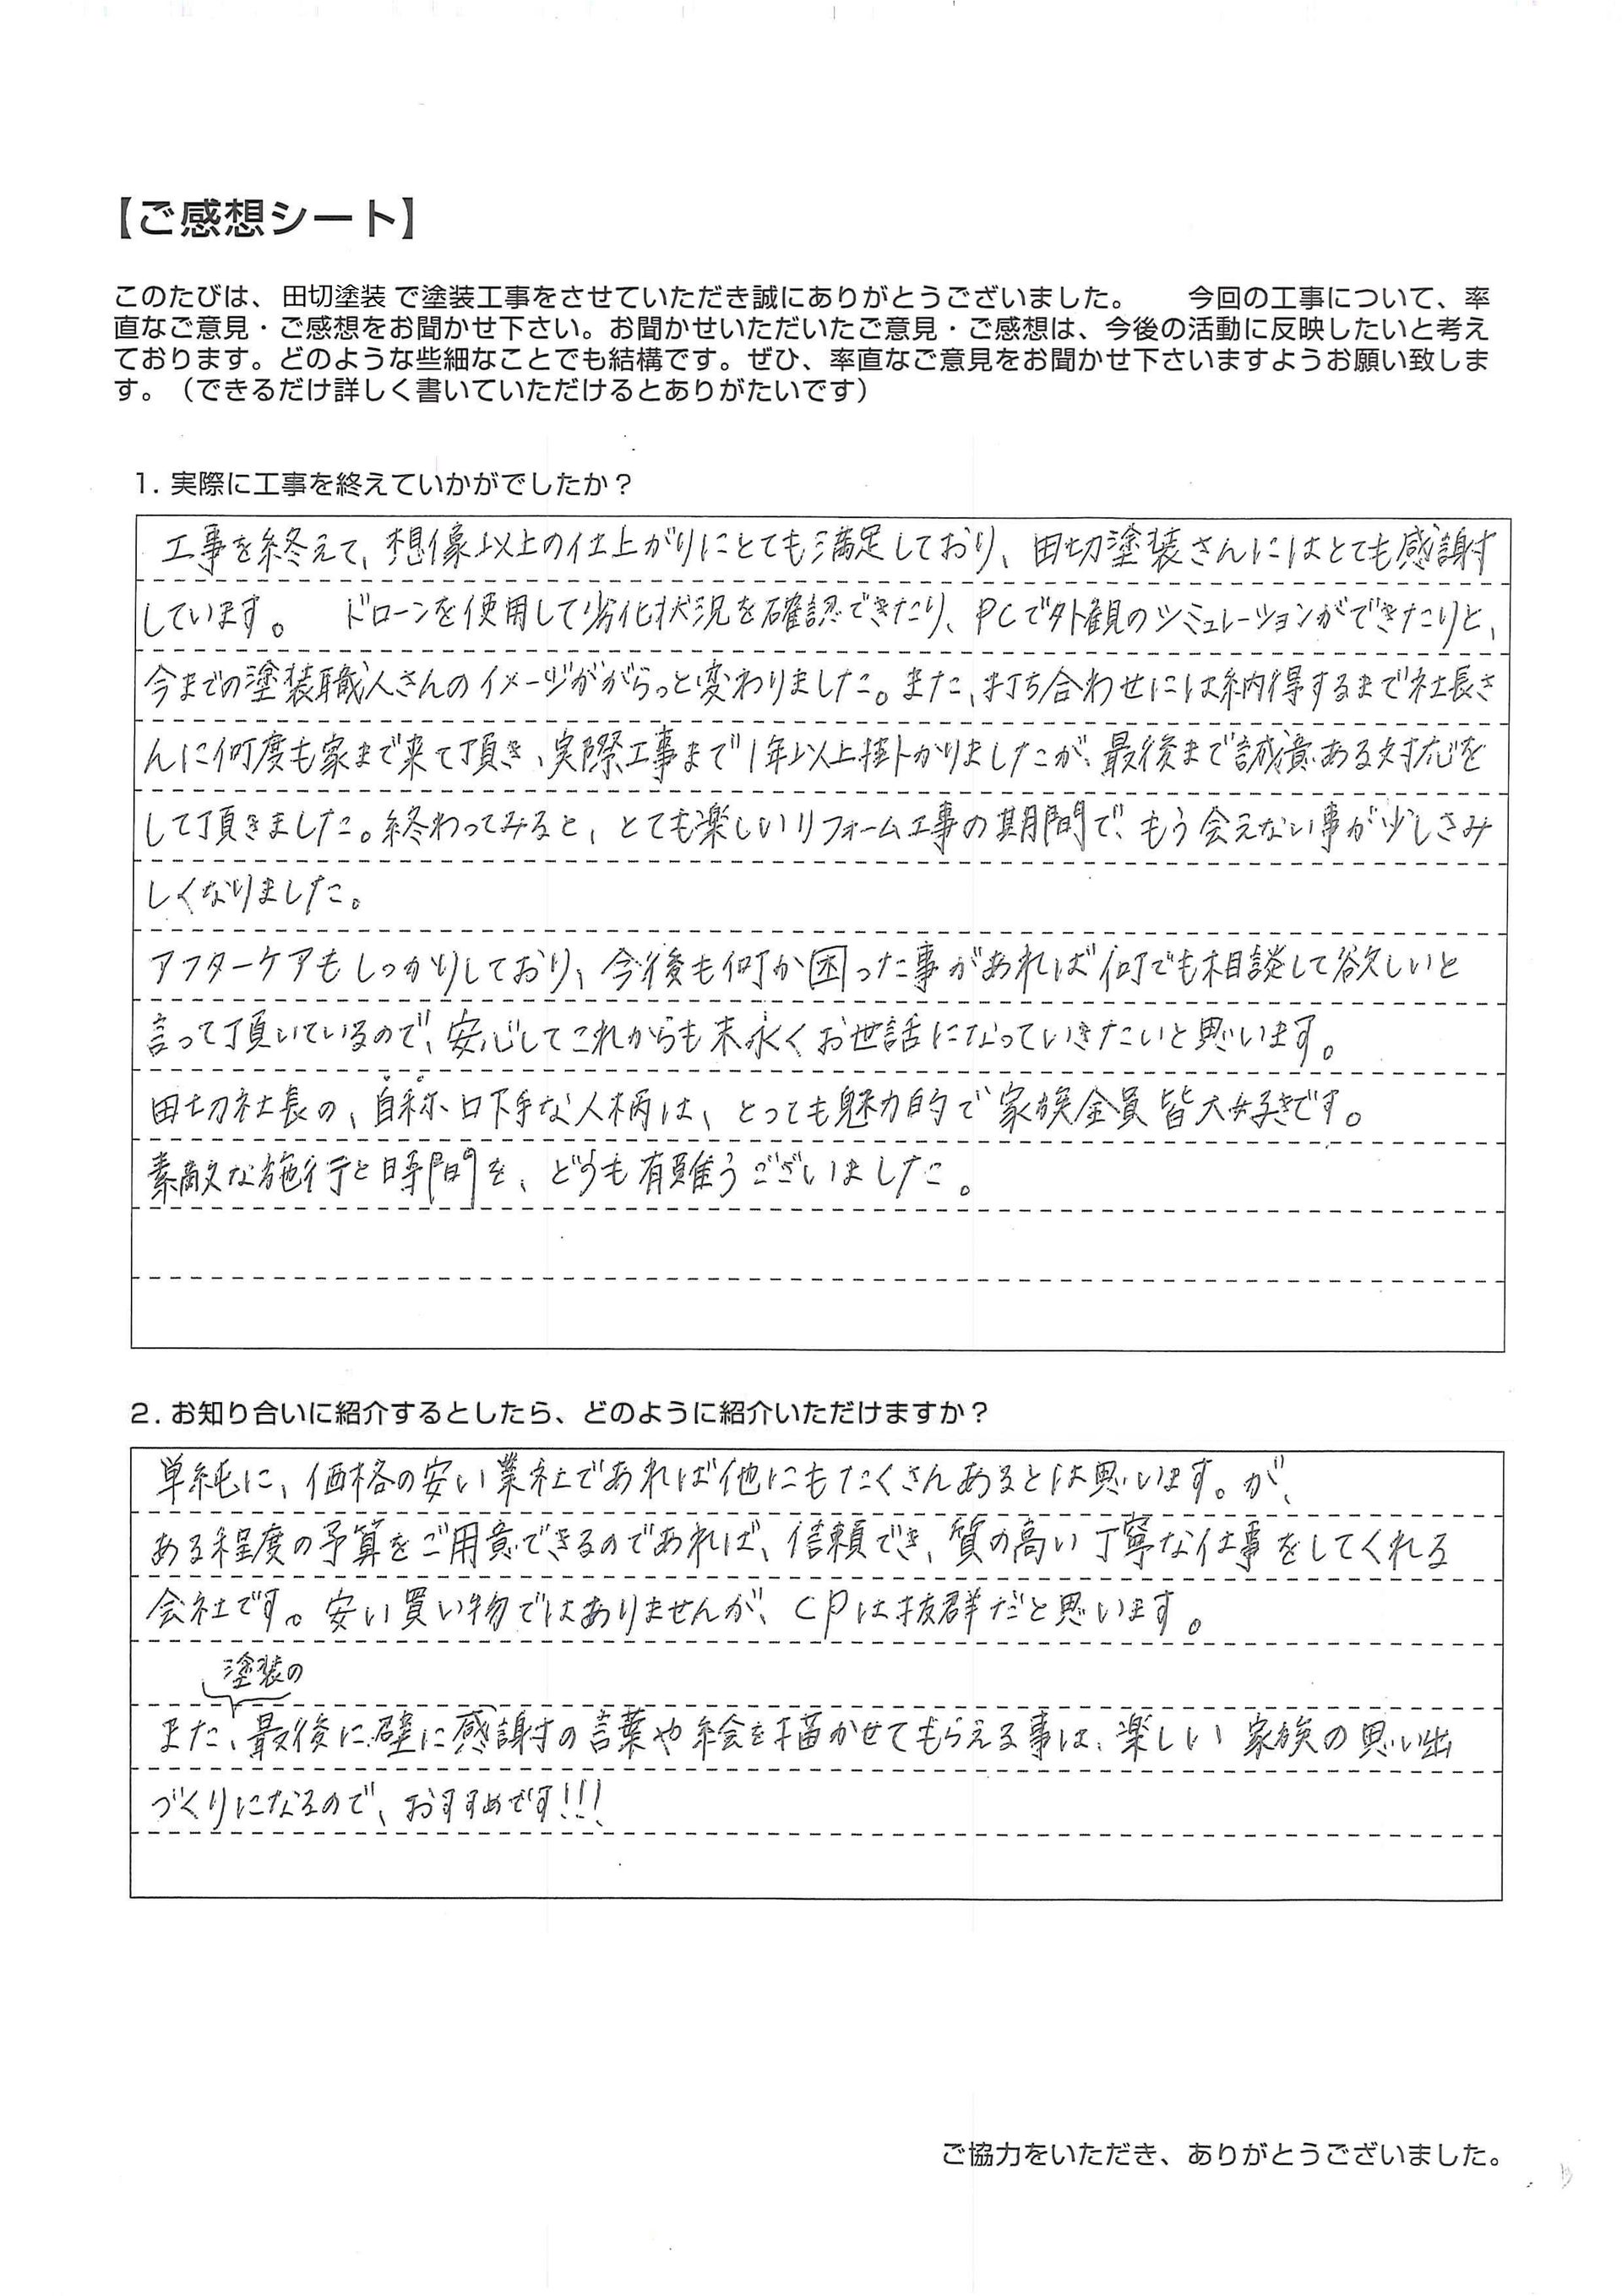 【ご感想シート】
このたびは、田切塗装で塗装工事をさせていただき誠にありがとうございました。　　今回の工事について、率
直なご意見・ご感想をお聞かせ下さい。お聞かせいただいたご意見・ご感想は、今後の活動に反映したいと考え
ております。どのような些細なことでも結構です。ぜひ、率直なご意見をお聞かせ下さいますようお願い致しま
す。（できるだけ詳しく書いていただけるとありがたいです）
1. 実際に工事を終えていかがでしたか？
工事を終えて、想像以上の仕上がりにとても満足しており、田切塗装さんにはとても感謝
しています。　ドローンを使用して劣化状況を確認できたり、PCで外観のシミュレーションができたりと、
今までの塗装職人さんのイメージががらっと変わりました。また、打ち合わせには納得するまで社長さ
んに何度も家まで来て頂き、実際工事まで1年以上掛かりましたが、最後まで誠意ある対応を
して頂きました。終わってみると、とても楽しいリフォーム工事の期間で、もう会えない事が少しさみ
しくなりました。
アフターケアもしっかりしており、今後も何か困った事があれば何でも相談して欲しいと
言って頂いているので、安心してこれからも末永くお世話になっていきたいと思います。
田切社長の、自称口下手な人柄は、とっても魅力的で家族全員皆大好きです。
素敵な施行と時間を、どうも有難うございました。
2. お知り合いに紹介するとしたら、どのように紹介いただけますか？
単純に、価格の安い業社であれば他にもたくさんあるとは思います。が、
ある程度の予算をご用意できるのであれば、信頼でき、質の高い丁寧な仕事をしてくれる
会社です。安い買い物ではありませんが、CPは抜群だと思います。
塗装の
また、最後に壁に感謝の言葉や絵を描かせてもらえる事は、楽しい家族の思い出
づくりになるので、おすすめです!!!
ご協力をいただき、ありがとうございました。